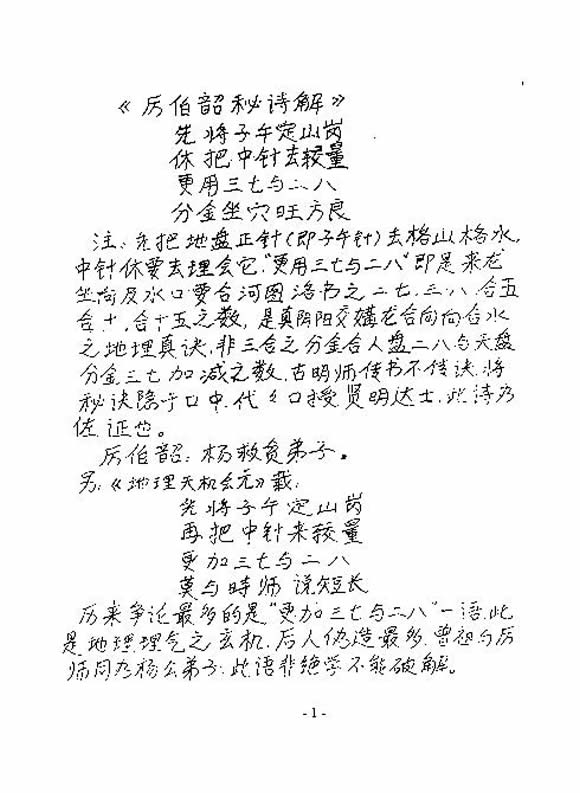 《厉伯韶秘诗解》
先将子午定山岗
休把中针去较量
更用三七与二八
分金坐穴旺方良
注:先把地盘正针(即子午针)去格山格水,
中针休要去理会它,"更用三七与二八"即是来龙
坐向及水口要合河图洛书之二七.三八.合五
合十.合十五之数,是真阴阳交媾龙合向向合水
之地理真诀,非三合之分金合人盘二八与天盘
分金三七加减之数.古明师传书不传诀.将
秘诀隐于口中.代々口授贤明达士,此诗乃
佐证也。
厉伯韶:杨救贫弟子。
另:《地理天机会元》载:
先将子午定山岗
再把中针来较量
更加三七与二八
莫与時师说短长
历来争论最多的是"更加三七与二八"一语.此
是地理理气之玄机,后人伪造最多.曾祖与厉
师同为杨公弟子:此语非绝学不能破解。
- 1 -